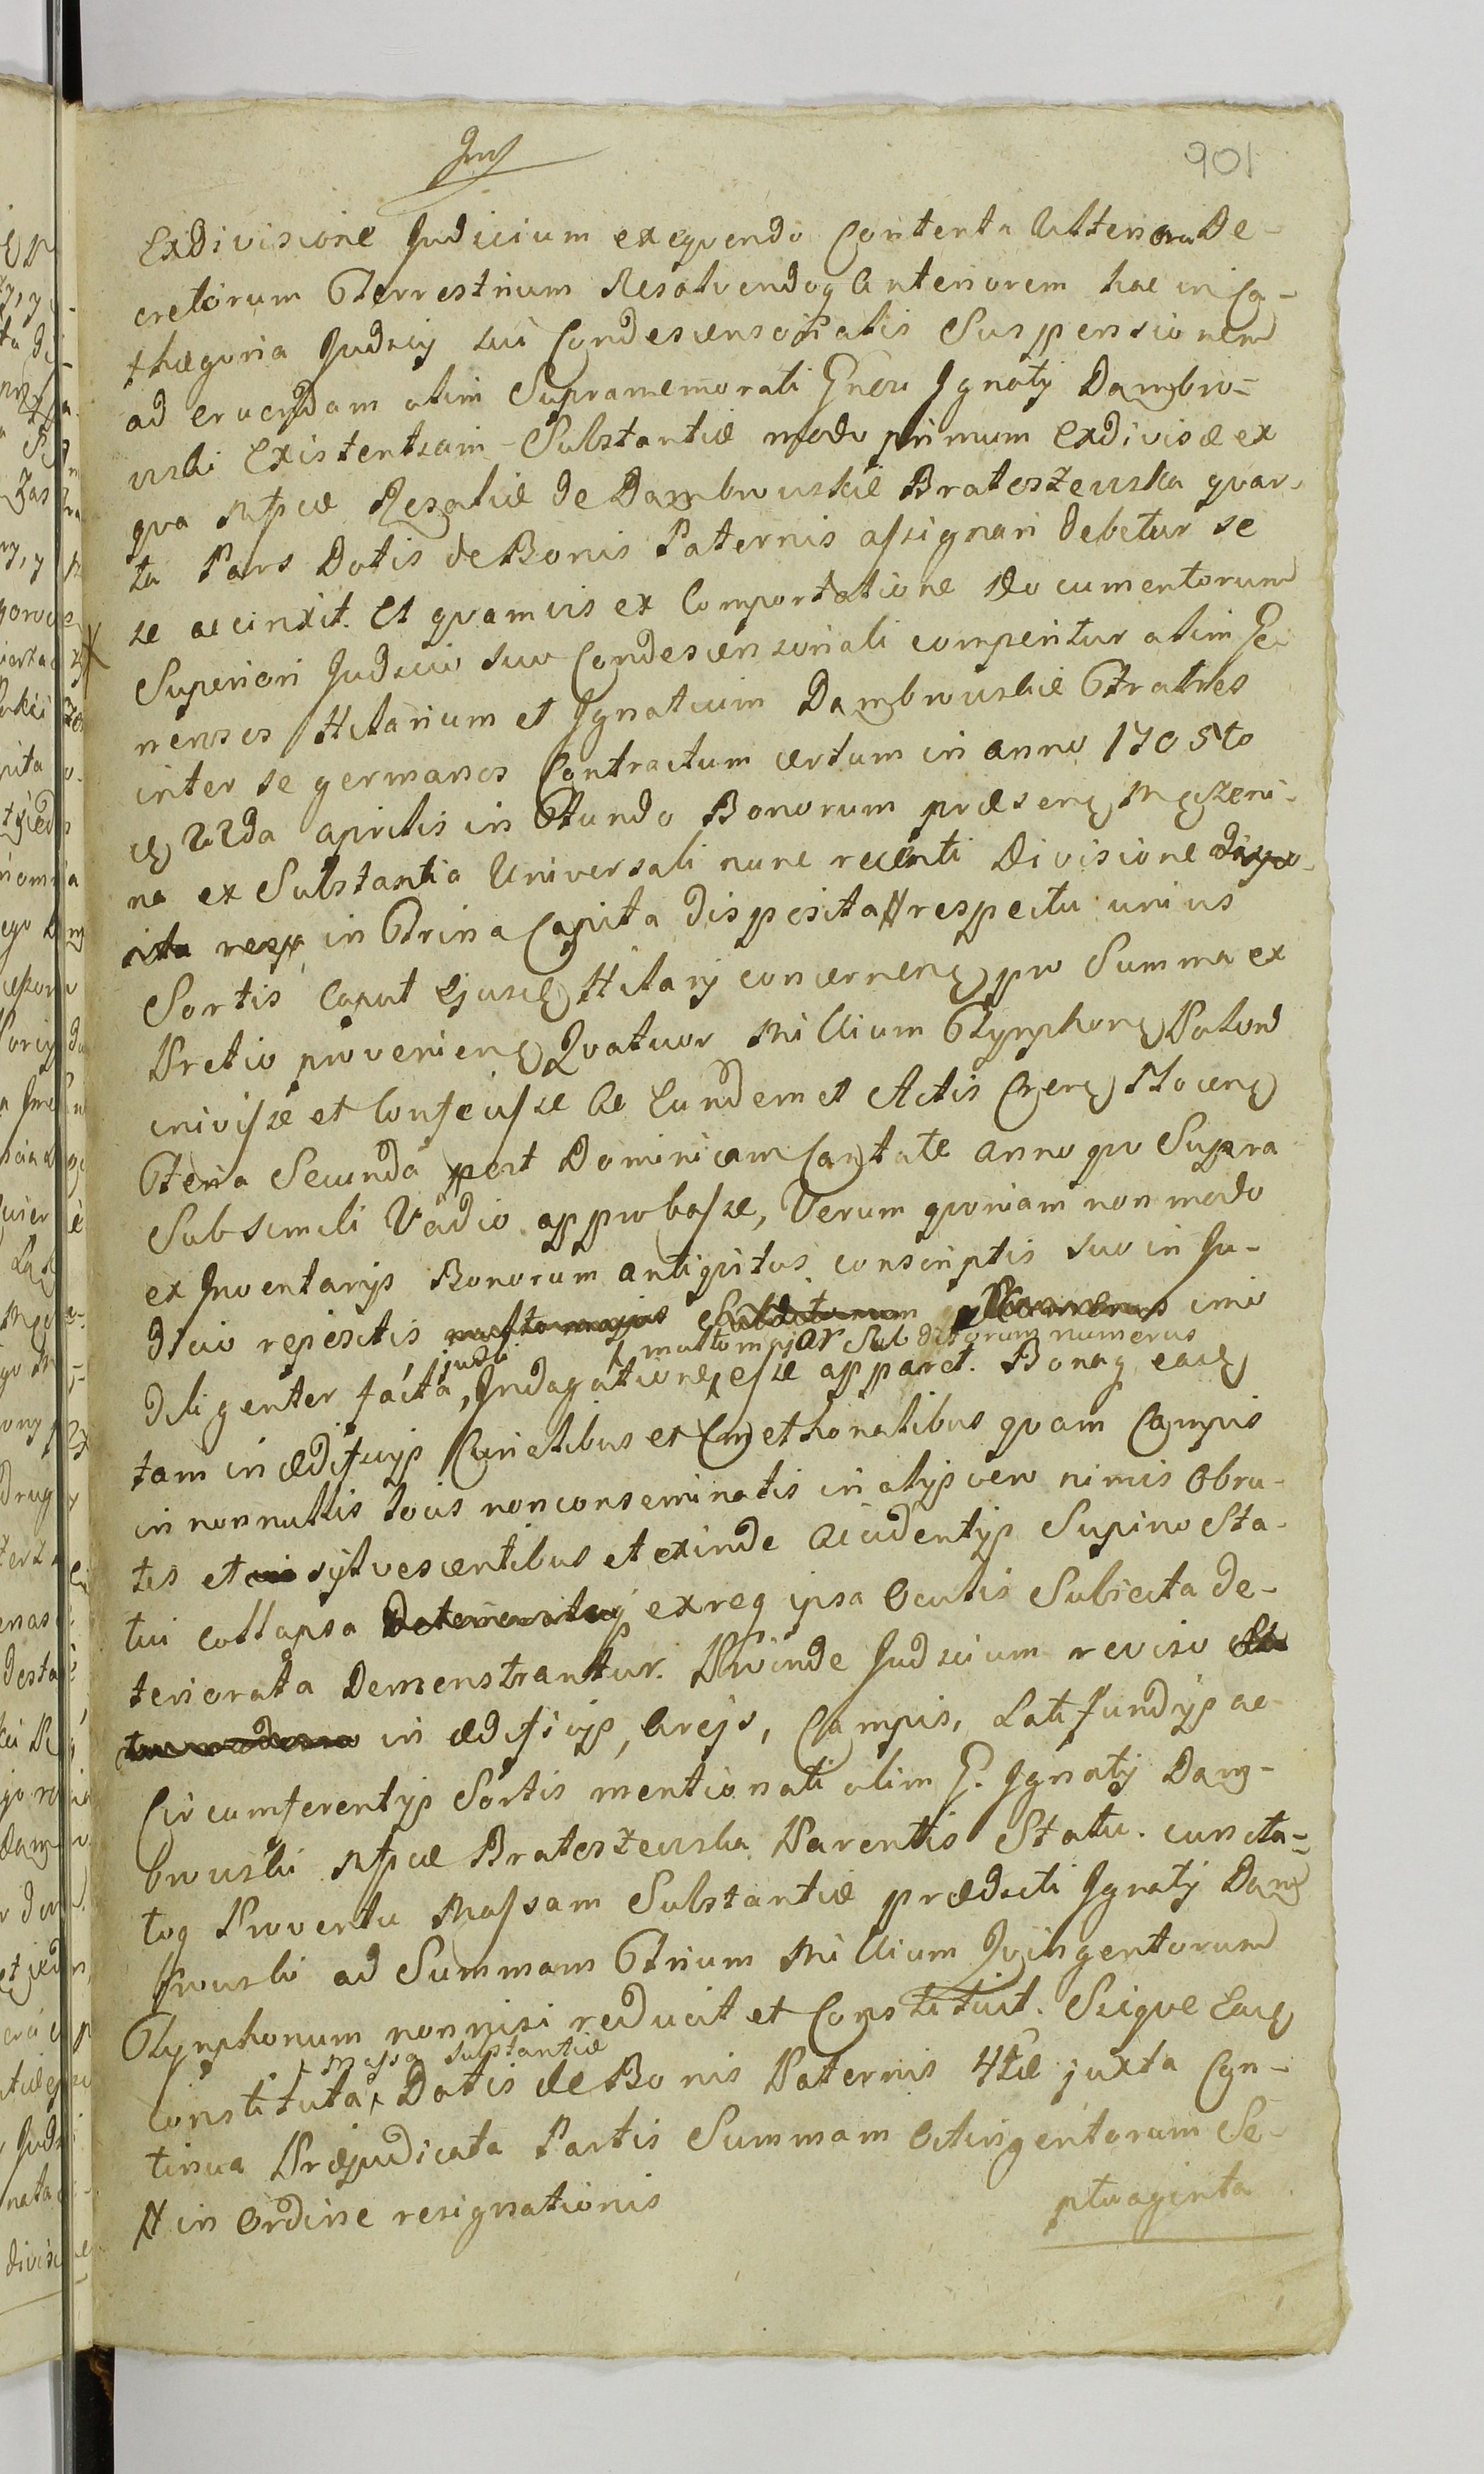 901
Exdivisione Judicium exequendo Contenta Ulteriora De-
cretorum Terrestrium Resolvendoq Anteriorem hac in Ca-
thegoria Judicij sui Condescensorialis Suspensionem
ad eruendam olim Supramemorati Gnosi Ignatij Dambro-
wski Existentiam Substantiæ modo primum Exdivisæ ex
qva Mfcæ Rosaliæ de Dambrowskie Bratoszewska qvar-
ta Pars Dotis de Bonis Paternis assignari debetur se
se accinxit. Et qvamvis ex Comportatione Documentorum
Superiori Judicio suo Condescensoriali comperitur olim Ge-
nerosos Hilarium et Ignatium Dambrowskie Fratres
inter se germanos Contractum certum in anno 1705to
22da aprilis in Fundo Bonorum præsen
na ex Substantia Universali nunc recenti Divisione
in Trina Capita disposita # respectu unius
Sortis Caput Ejusd Hilarij concernen pro Summa ex
Pretio provenien Qvatuor Millium Tynphon Polon
inivisse et Confecisse ac Eundem et Actis
Feria Secunda post Dominicam Cantate anno qvo Supra
Sub simili Vadio approbasse, Verum qvoniam non modo
ex Inventarijs Bonorum antiqvitus conscriptis suo in Ju-
dicio repositis imo
multo major Subditorum numerus
diligenter facta, Indagatione, esse apparet. Bonaq eade
tam in ædificijs Curialibus et Cmethonalibus qvam Campis
in nonnullis locis non conseminatis in alijs vero nimis Obru-
tis et sylvescentibus et exinde accidentijs Supino Sta-
tui collapsa ex req ipsa Oculis Subiecta de-
teriorata Demonstrantur. Proinde Judicium reviso
in ædificijs, Areis, Campis, Latifundijs ac
Circumferentijs Sortis mentionati olim G. Ignatij Dam-
browski Mfcæ Bratoszewska Parentis Statu. cuncta-
toq Proventu Massam Substantiæ prædicti Ignatij Dam
browski ad Summam Trium Millium Qvingentorum
Tynphonum nonnisi reducit et Constituit. Sicque Eade
massa substantiæ
Constituta Dotis de Bonis Paternis 4tæ juxta Con-
tinua Præjudicata Partis Summam Octingentorum Se-
# in Ordine resignationis
ptuaginta